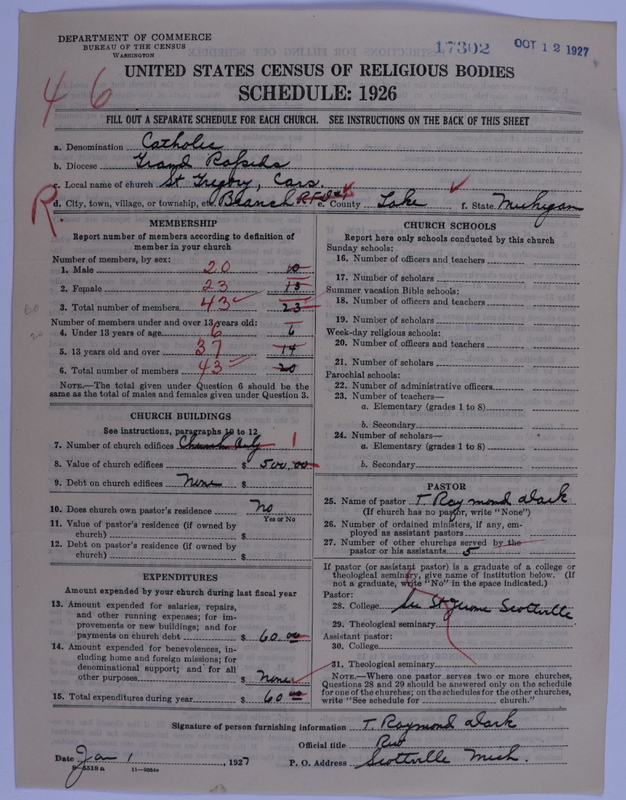 DEPARTMENT OF COMMERCE
BUREAU OF THE CENSUS
WASHINGTON
17302
OCT 12 1927
UNITED STATES CENSUS OF RELIGIOUS BODIES
SCHEDULE: 1926
46
FILL OUT A SEPARATE SCHEDULE FOR EACH CHURCH. SEE INSTRUCTIONS ON THE BACK OF THIS SHEET
a. Denomination Catholic
b. Diocese Grand Rapids
c. Local name of church St Gregory, Cars.
R
d. City, town, village, or township, etc. Branch e. County Lake f. State Michigan
MEMBERSHIP
Report number of members according to definition of
member in your church
Number of members, by sex:
1. Male 20 10
2. Female 23 13
3. Total number of members 43 23
Number of members under and over 13 years old:
4. Under 13 years of age 6 6
5. 13 years old and over 37 14
6. Total number of members 43 20
NOTE.—The total given under Question 6 should be the
same as the total of males and females given under Question 3.
CHURCH BUILDINGS
See instructions, paragraphs 10 to 12
7. Number of church edifices Church only 1
8. Value of church edifices $ 500.00
9. Debt on church edifices None $
10. Does church own pastor's residence No
Yes or No
11. Value of pastor's residence (if owned by
church) $
12. Debt on pastor's residence (if owned by
church) $
EXPENDITURES
Amount expended by your church during last fiscal year
13. Amount expended for salaries, repairs,
and other running expenses; for im-
provements or new buildings; and for
payments on church debt $ 60.00
14. Amount expended for benevolences, in-
cluding home and foreign missions; for
denominational support; and for all
other purposes $ None
15. Total expenditures during year $ 60.00
CHURCH SCHOOLS
Report here only schools conducted by this church
Sunday schools:
16. Number of officers and teachers
17. Number of scholars
Summer vacation Bible schools:
18. Number of officers and teachers
19. Number of scholars
Week-day religious schools:
20. Number of officers and teachers
21. Number of scholars
Parochial schools:
22. Number of administrative officers
23. Number of teachers—
a. Elementary (grades 1 to 8)
b. Secondary
24. Number of scholars—
a. Elementary (grades 1 to 8)
b. Secondary
PASTOR
25. Name of pastor T Raymond Dark
(If church has no pastor, write "None")
26. Number of ordained ministers, if any, em-
ployed as assistant pastors
27. Number of other churches served by the
pastor or his assistants 5
If pastor (or assistant pastor) is a graduate of a college or
theological seminary, give name of institution below. (If
not a graduate, write "No" in the space indicated.)
Pastor:
28. College See St Jerome Scottville
29. Theological seminary
Assistant pastor:
30. College
31. Theological seminary
NOTE.—Where one pastor serves two or more churches,
Questions 28 and 29 should be answered only on the schedule
for one of the churches; on the schedules for the other churches,
write "See schedule for church."
Signature of person furnishing information T. Raymond Dark
Official title
Date Jan 1, 1927 P. O. Address Scottville Mich.